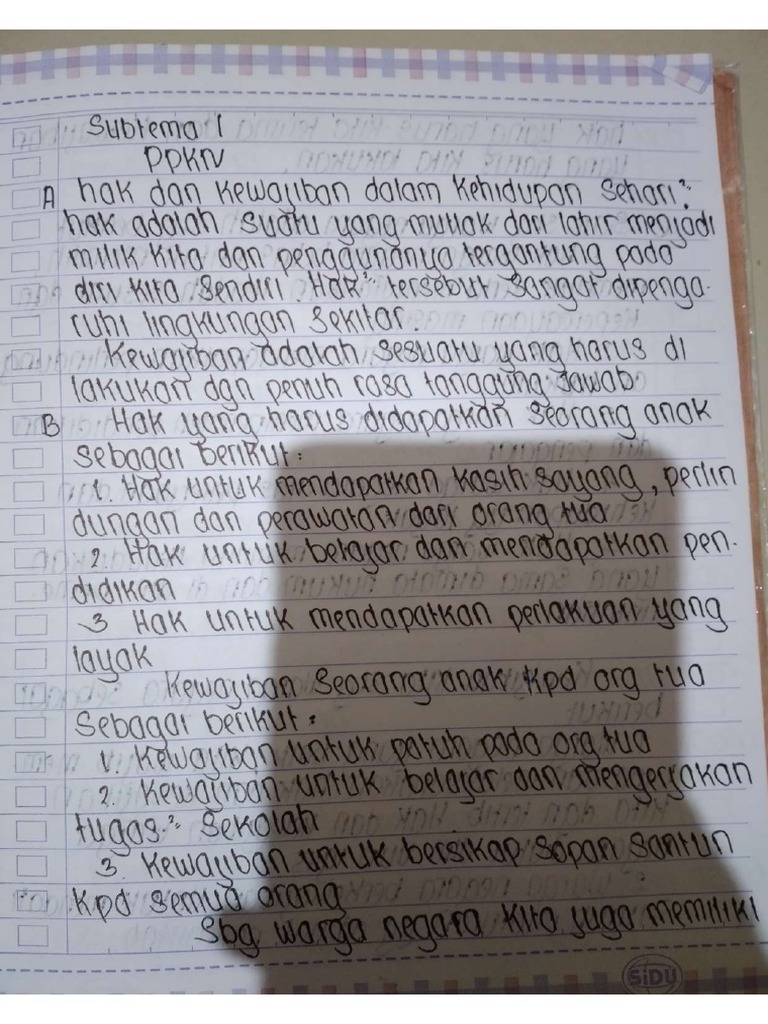 Subtema 1
PPKN
A hak dan kewajiban dalam kehidupan sehari²
hak adalah suatu yang mutlak dari lahir menjadi
milik kita dan penggunanya tergantung pada
diri kita sendiri. Hak² tersebut sangat dipenga-
ruhi lingkungan sekitar.
Kewajiban adalah sesuatu yang harus di
lakukan dgn penuh rasa tanggung jawab.
B Hak yang harus didapatkan seorang anak
sebagai berikut:
1. Hak untuk mendapatkan kasih sayang, perlin
dungan dan perawatan dari orang tua
2 Hak untuk belajar dan mendapatkan pen-
didikan
3 Hak untuk mendapatkan perlakuan yang
layak
Kewajiban seorang anak kpd org tua
sebagai berikut:
1. Kewajiban untuk patuh pada org tua
2. Kewajiban untuk belajar dan mengerjakan
tugas² sekolah
3. Kewajiban untuk bersikap sopan santun
kpd semua orang
Sbg warga negara kita juga memiliki
SiDU